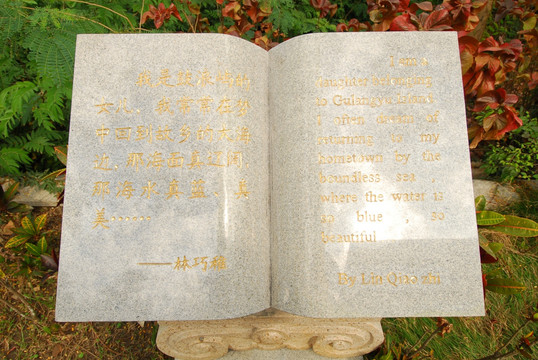 我是鼓浪屿的
女儿，我常常在梦
中回到故乡的大海
边，那海面真辽阔，
那海水真蓝、真
美……
——林巧稚
I am a
daughter belonging
to Gulangyu Island.
I often dream of
returning to my
hometown by the
boundless sea ,
where the water is
so blue , so
beautiful
By Lin Qiao zhi